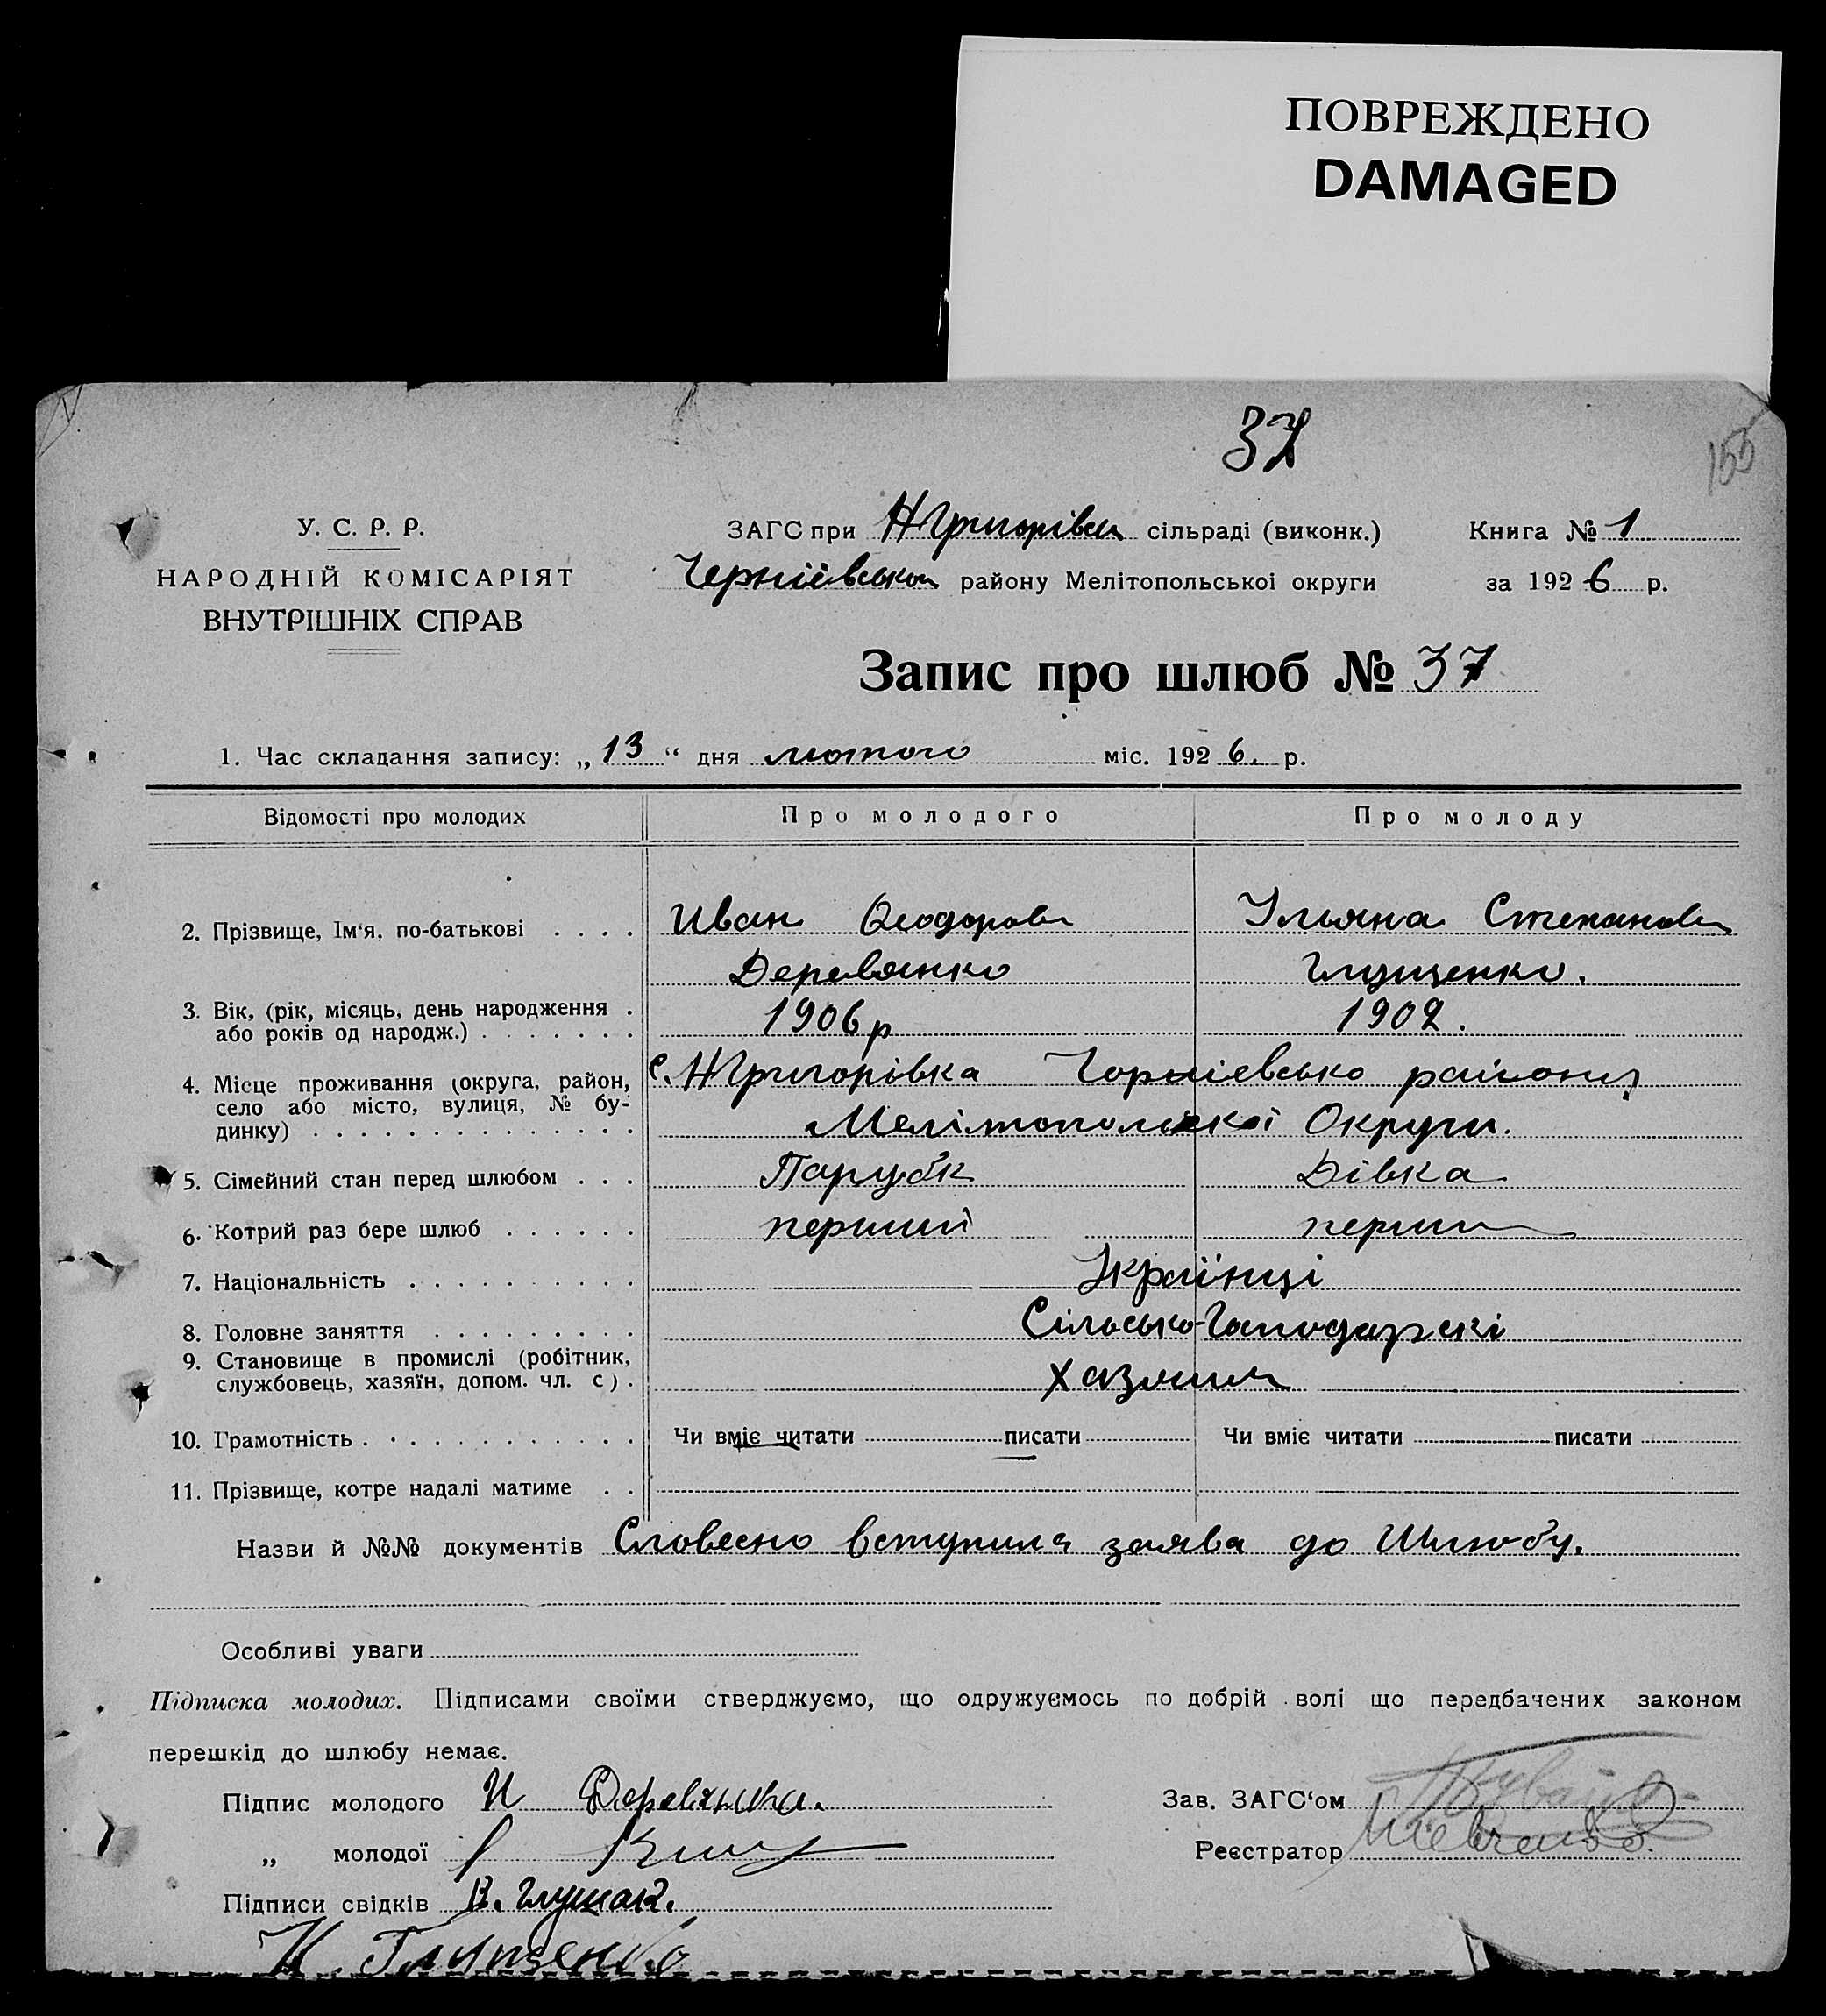 ПОВРЕЖДЕНО
DAMAGED
37
155
У. С. Р. Р.
НАРОДНІЙ КОМІСАРІЯТ
ВНУТРІШНІХ СПРАВ
ЗАГС при НГригорівск сільраді (виконк.) Книга № 1
району Мелітопольськоі округи за 1926 р.
Запис про шлюб № 37
1. Час складання запису: „13“ дня лютого міс. 1926. р.
Відомості про молодих Про молодого Про молоду
2. Прізвище, Ім‘я, по-батькові Иван Феодоров Ульяна Степанов
Деревянко Глущенко.
3. Вік, (рік, місяць, день народження 1906 р 1902.
або років од народж.)
4. Місце проживання (округа, район, с. НГригорівка Чорніевсько району
село або місто, вулиця, № бу-
динку) Мелітопольскоі Округи.
5. Сімейний стан перед шлюбом Парубк Дівка
6. Котрий раз бере шлюб перший перши
7. Національність Українці
8. Головне заняття Сільсько-Господарскі
9. Становище в промислі (робітник,
службовець, хазяїн, допом. чл. с). хазяини
10. Грамотність Чи вміє читати писати Чи вміє читати писати
11. Прізвище, котре надалі матиме
Назви й №№ документів Словесно вступила заява до Шлюбу.
Особливі уваги
Підписка молодих. Підписами своїми стверджуємо, що одружуємось по добрій волі що передбачених законом
перешкід до шлюбу немає.
Підпис молодого И Деревянко. Зав. ЗАГС‘ом
„ молодої Реєстратор
Підписи свідків В.
К. Глущенко